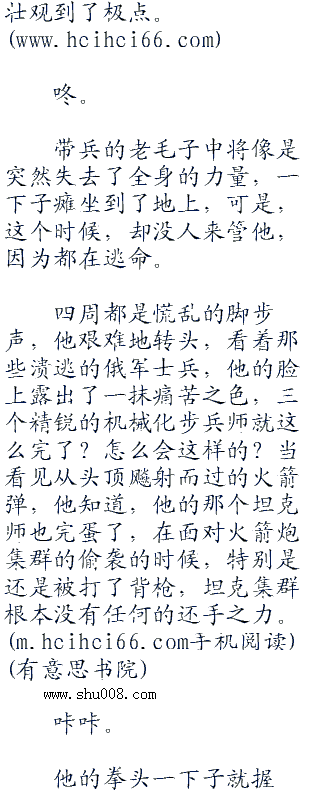 壮观到了极点。
(www.hcihci66.com)
咚。
带兵的老毛子中将像是
突然失去了全身的力量，一
下子瘫坐到了地上，可是，
这个时候，却没人来管他，
因为都在逃命。
四周都是慌乱的脚步
声，他艰难地转头，看着那
些溃逃的俄军士兵，他的脸
上露出了一抹痛苦之色，三
个精锐的机械化步兵师就这
么完了？怎么会这样的？当
看见从头顶飚射而过的火箭
弹，他知道，他的那个坦克
师也完蛋了，在面对火箭炮
集群的偷袭的时候，特别是
还是被打了背枪，坦克集群
根本没有任何的还手之力。
(m.hcihci66.com手机阅读)
(有意思书院)
www.shu008.com
咔咔。
他的拳头一下子就握